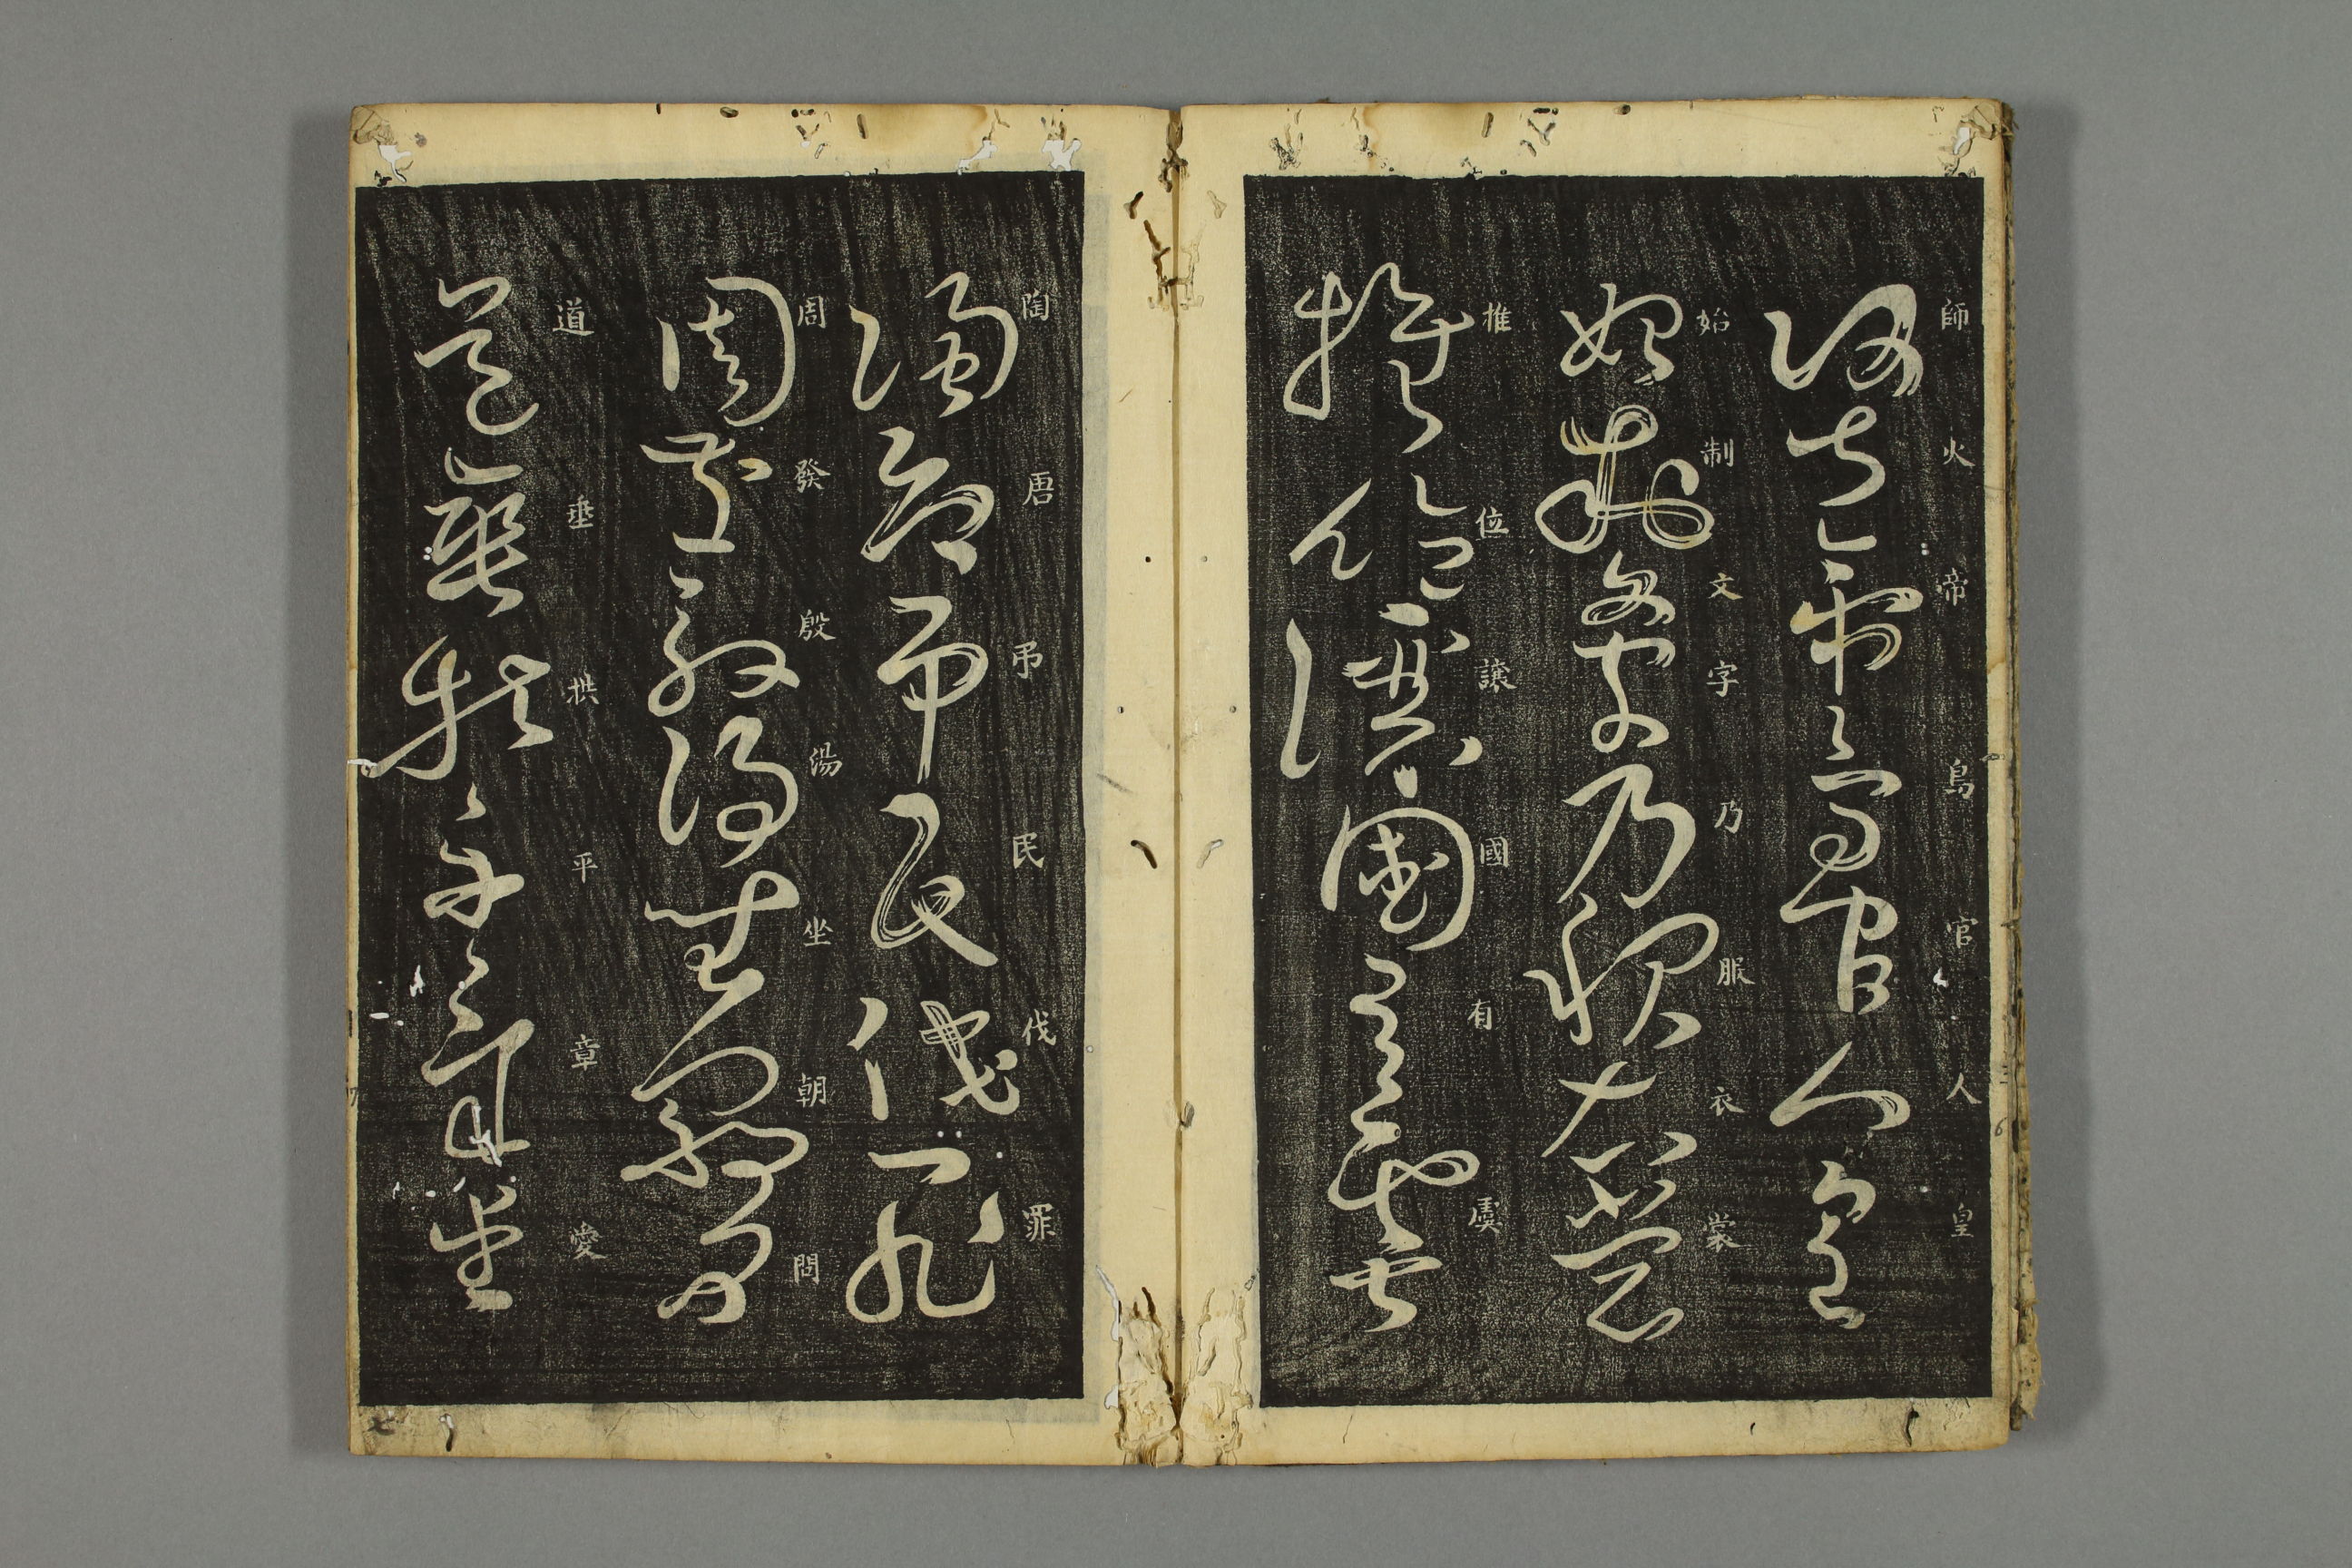 師火帝鳥官人皇
始制文字乃服衣裳
推位讓國有虞
陶唐弔民伐罪
周發殷湯坐朝問
道垂拱平章愛